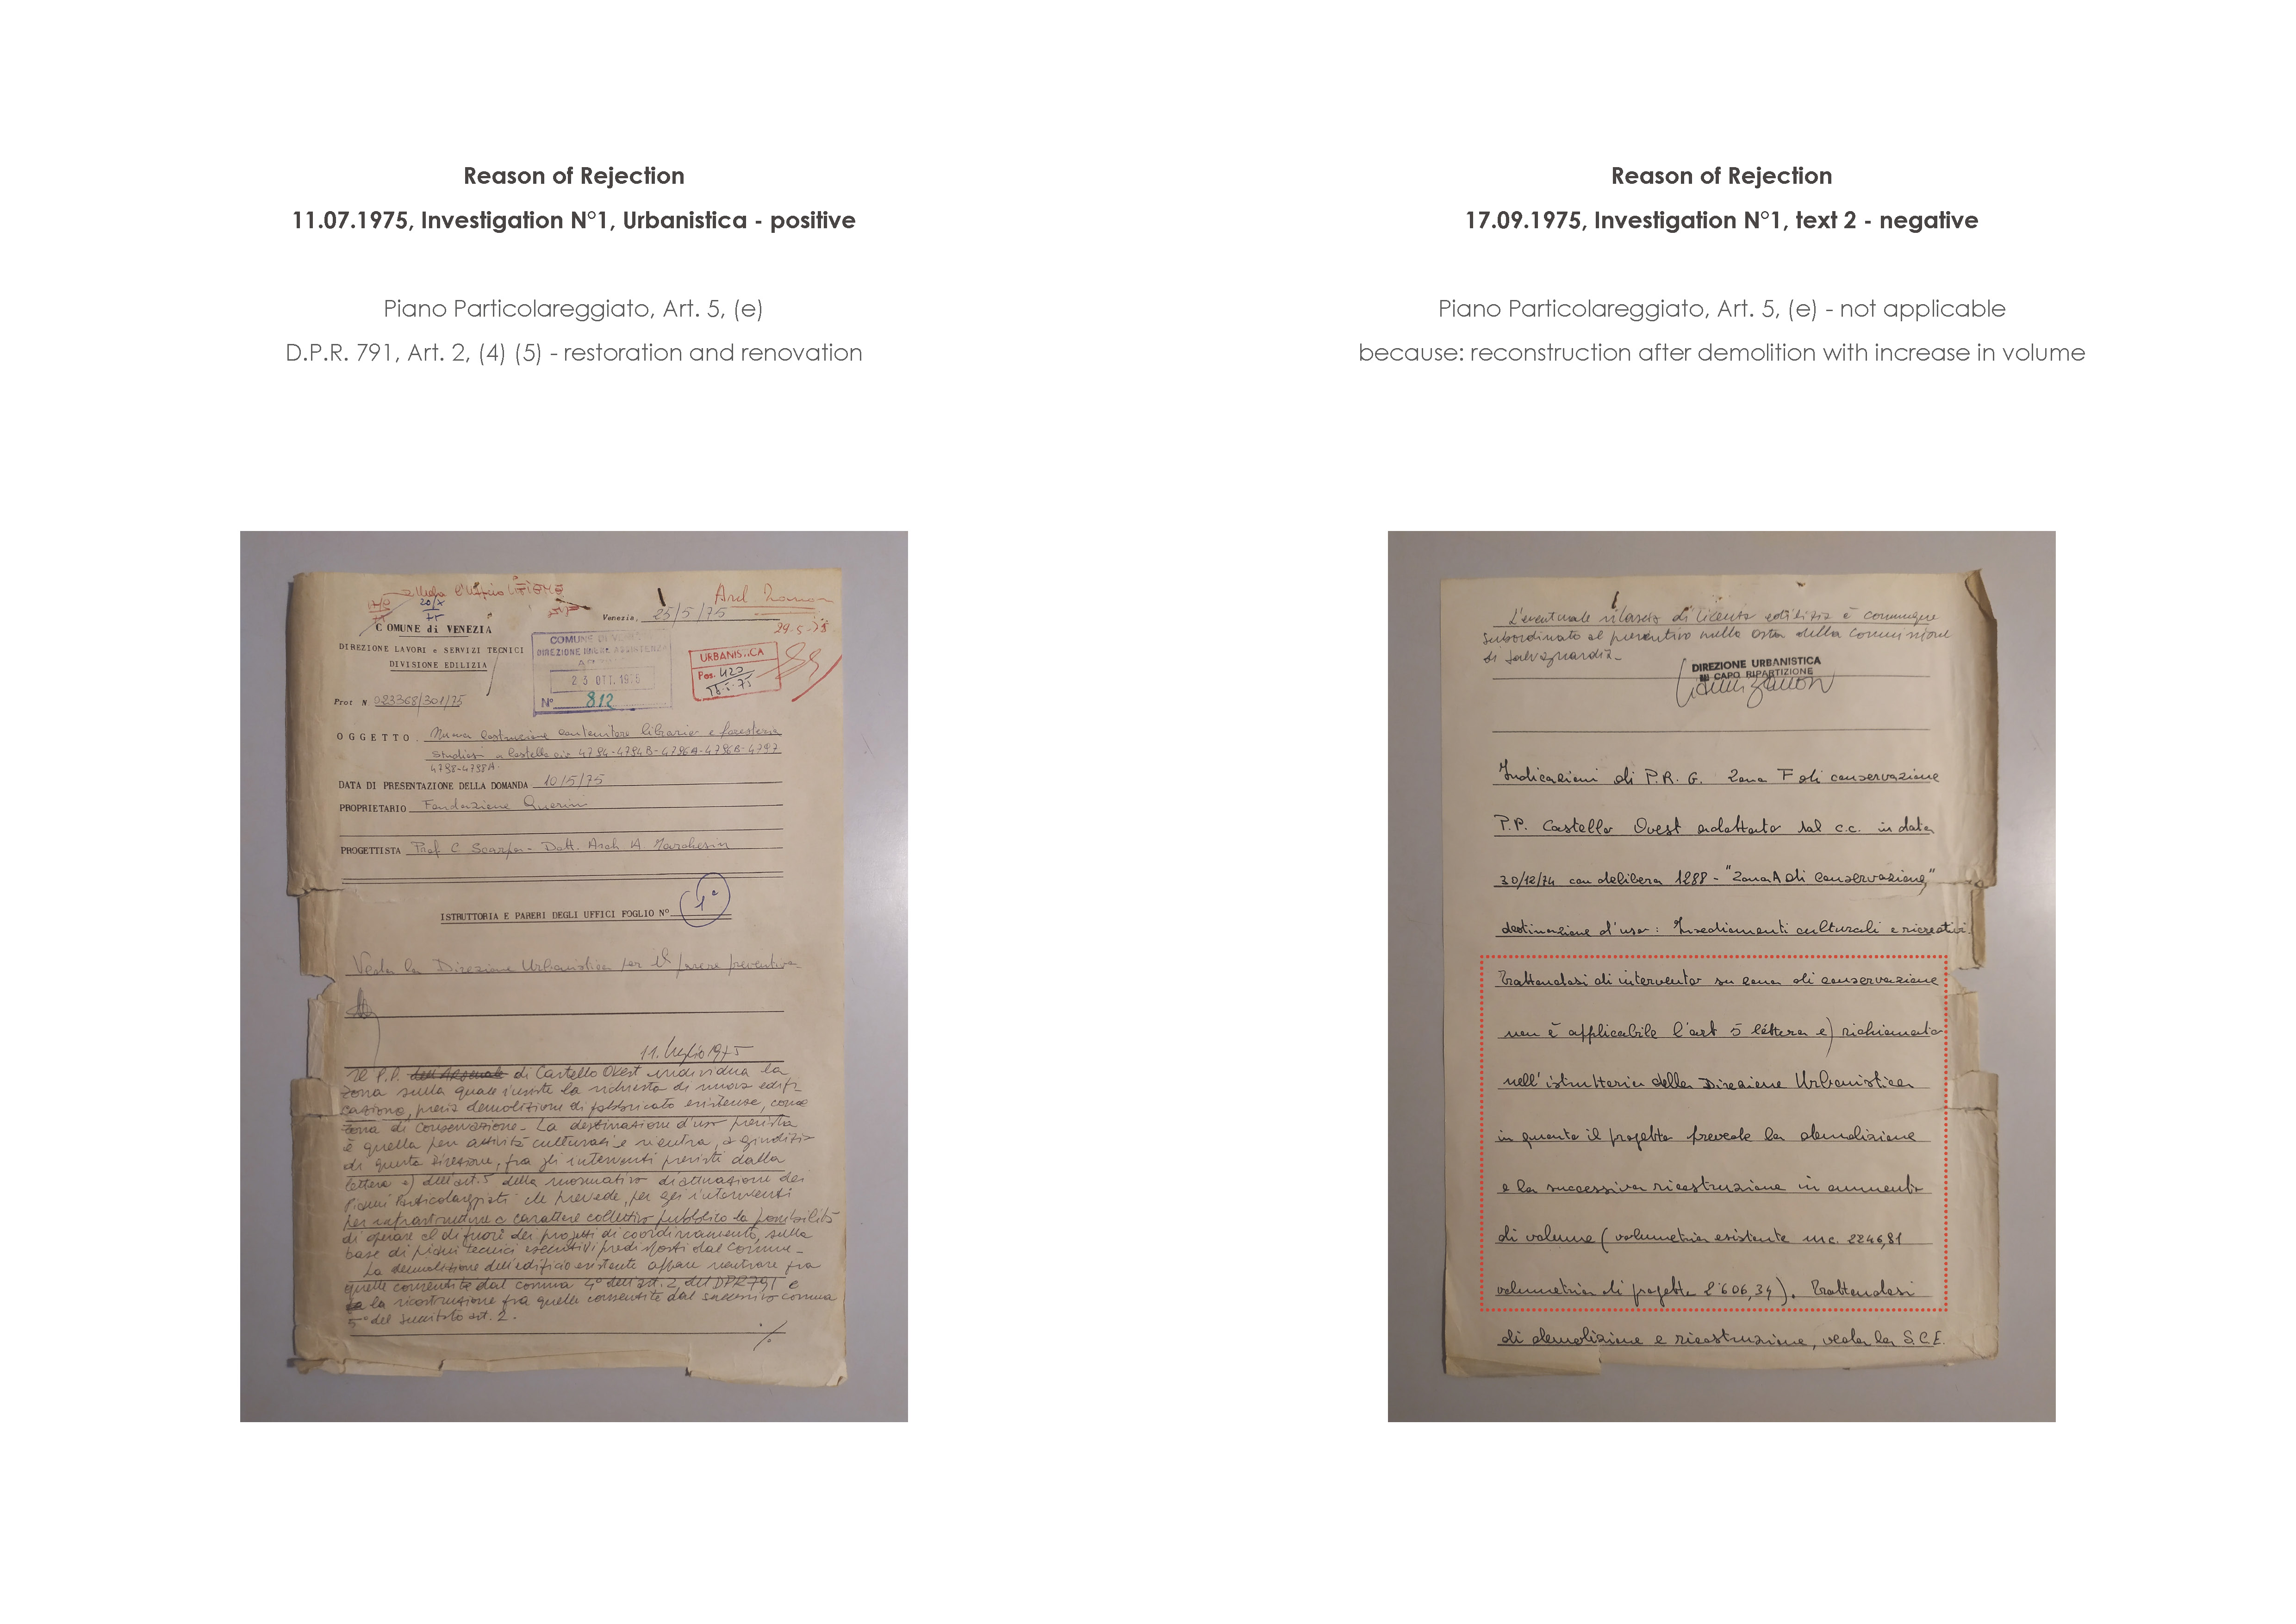 Reason of Rejection
11.07.1975, Investigation N°1, Urbanistica - positive
Piano Particolareggiato, Art. 5, (e)
D.P.R. 791, Art. 2, (4) (5) - restoration and renovation
alleda l'Ufficio
20/X
75
Venezia, 25/5/75
29-5-75
COMUNE di VENEZIA
DIREZIONE LAVORI e SERVIZI TECNICI
DIVISIONE EDILIZIA
COMUNE DI
DIREZIONE
23 OTT. 1975
N° 812
URBANISTICA
Pos. 420
Prot N 023368/301/75
OGGETTO Nuova costruzione contenitore librario e foresteria
studiosi a Castello civ 4794-4794B-4796A-4796B-4797
4798-4798A.
DATA DI PRESENTAZIONE DELLA DOMANDA 10/5/75
PROPRIETARIO Fondazione Querini
PROGETTISTA Prof C Scarpa - Dott. Arch A Marchesin
ISTRUTTORIA E PARERI DEGLI UFFICI FOGLIO N° 1°
Veda la Direzione Urbanistica per il parere preventivo
11. luglio 1975
Il P.P. dell'Arsenale di Castello Ovest individua la
zona sulla quale insiste la richiesta di nuova edifi
cazione, previa demolizione di fabbricato esistente, come
zona di Conservazione - La destinazione d'uso prevista
è quella per attività culturali e rientra, a giudizio
di questa Direzione, fra gli interventi previsti dalla
lettera e) dell'art. 5 della normativa di attuazione dei
Piani Particolareggiati che prevede, per gli interventi
per infrastrutture a carattere collettivo pubblico la possibilità
di operare al di fuori dei progetti di coordinamento, sulla
base di piani tecnici esecutivi predisposti dal Comune -
La demolizione dell'edificio esistente appare rientrare fra
quelle consentite dal comma 4° dell'art. 2 del DPR 791 e
la la ricostruzione fra quelle consentite dal successivo comma
5° del suindicato art. 2.
./.
Reason of Rejection
17.09.1975, Investigation N°1, text 2 - negative
Piano Particolareggiato, Art. 5, (e) - not applicable
because: reconstruction after demolition with increase in volume
L'eventuale rilascio di licenza edilizia è comunque
subordinato al preventivo nulla osta della Commissione
di Salvaguardia -
DIREZIONE URBANISTICA
IL CAPO RIPARTIZIONE
Indicazioni di P.R.G. Zona F di conservazione
P.P. Castello Ovest adottato dal c.c. in data
30/12/74 con delibera 1288 - "Zona A di Conservazione"
destinazione d'uso: Insediamenti culturali e ricreativi.
Trattandosi di intervento su zona di conservazione
non è applicabile l'art 5 lettera e) richiamato
nell'istruttoria della Direzione Urbanistica
in quanto il progetto prevede la demolizione
e la successiva ricostruzione in aumento
di volume (volumetria esistente mc. 2246,81
volumetria di progetto 2'606,34). Trattandosi
di demolizione e ricostruzione, veda la S.C.E.